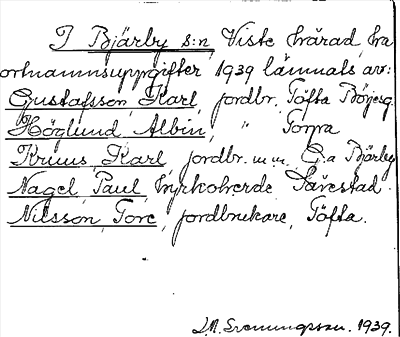 I Bjärby s:n, Viste härad, ha
ortnamnsuppgifter 1939 lämnats av:
Gustafsson, Karl, jordbr. Töfta Börjesg.
Höglund Albin, " Torpa
Kruus, Karl, jordbr. m m. G:a Bjärby
Nagel, Paul, kyrkoherde Sävestad.
Nilsson, Tore, jordbrukare, Töfta.
1939.